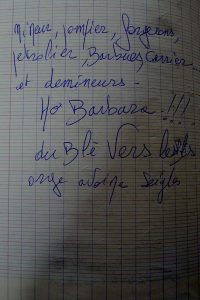 mineur, pompier, forgerons,
petrolier, Barbues, Carrier
et demineurs -
Ho Barbara !!!!
du Blé Vers les
orge avoine Seigles